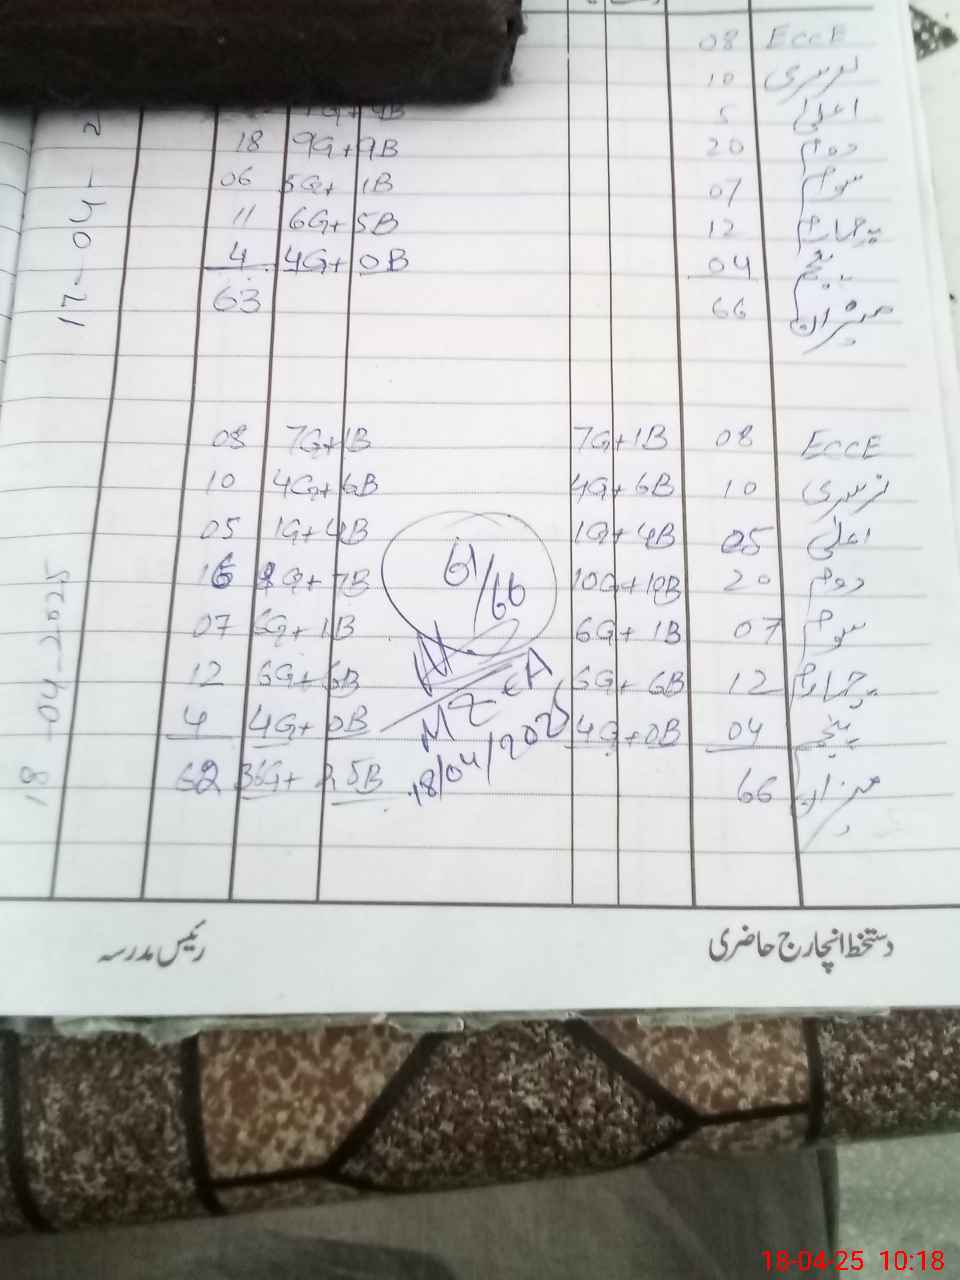 08 ECCE
10 نرسری
1G+4B 5 اعلیٰ
18 9G+9B 20 دوم
06 5G+1B 07 سوم
11 6G+5B 12 چہارم
4 4G+0B 04 پنجم
63 66 میزان
17-04-2
08 7G+1B 7G+1B 08 ECCE
10 4G+6B 4G+6B 10 نرسری
05 1G+4B 1G+4B 05 اعلیٰ
16 G+7B 10G+10B 20 دوم
07 6G+1B 6G+1B 07 سوم
12 6G+6B 6G+6B 12 چہارم
4 4G+0B 4G+0B 04 پنجم
62 36G+25B 66 میزان
61/66
MEA
18/04/2025
18-04-2025
دستخط انچارج حاضری رئیس مدرسہ
18-04-25 10:18